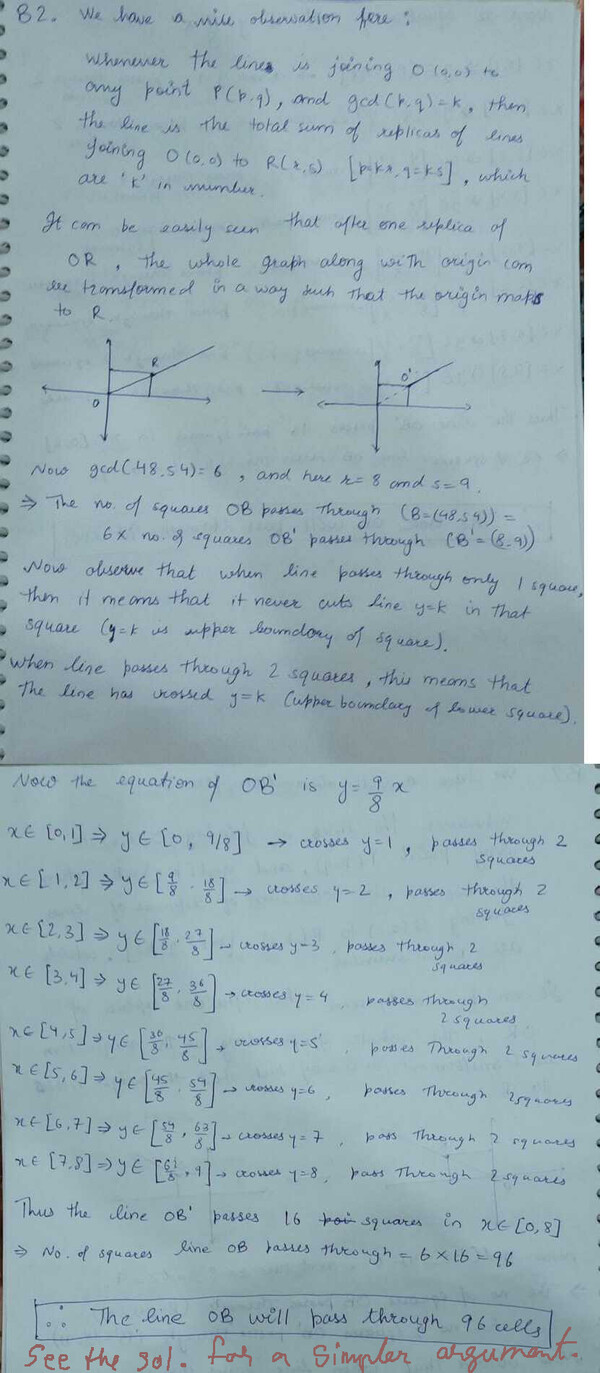 B2. We have a nice observation here :
Whenever the line is joining O(0,0) to
any point P(p,q), and gcd(p,q)=k, then
the line is the total sum of replicas of lines
joining O(0,0) to R(r,s) [p=kr, q=ks], which
are 'k' in number.
It can be easily seen that after one replica of
OR, the whole graph along with origin can
be transformed in a way such that the origin maps
to R
R
O
O'
Now gcd(48,54)=6, and here r=8 and s=9.
⇒ The no. of squares OB passes through (B=(48,54)) =
6× no. of squares OB' passes through (B'=(8,9))
Now observe that when line passes through only 1 square,
then it means that it never cuts line y=k in that
square (y=k is upper boundary of square).
When line passes through 2 squares, this means that
the line has crossed y=k (upper boundary of lower square).
Now the equation of OB' is y=9/8 x
x∈[0,1]⇒ y∈[0, 9/8] → crosses y=1, passes through 2 squares
x∈[1,2]⇒ y∈[9/8, 18/8] → crosses y=2, passes through 2 squares
x∈[2,3]⇒ y∈[18/8, 27/8] → crosses y=3, passes through 2 squares
x∈[3,4]⇒ y∈[27/8, 36/8] → crosses y=4, passes through 2 squares
x∈[4,5]⇒ y∈[36/8, 45/8] → crosses y=5, passes through 2 squares
x∈[5,6]⇒ y∈[45/8, 54/8] → crosses y=6, passes through 2 squares
x∈[6,7]⇒ y∈[54/8, 63/8] → crosses y=7, pass through 2 squares
x∈[7,8]⇒ y∈[63/8, 9] → crosses y=8, pass through 2 squares
Thus the line OB' passes 16 squares in x∈[0,8]
⇒ No. of squares line OB passes through = 6×16=96
∴ The line OB will pass through 96 cells
See the sol. for a simpler argument.